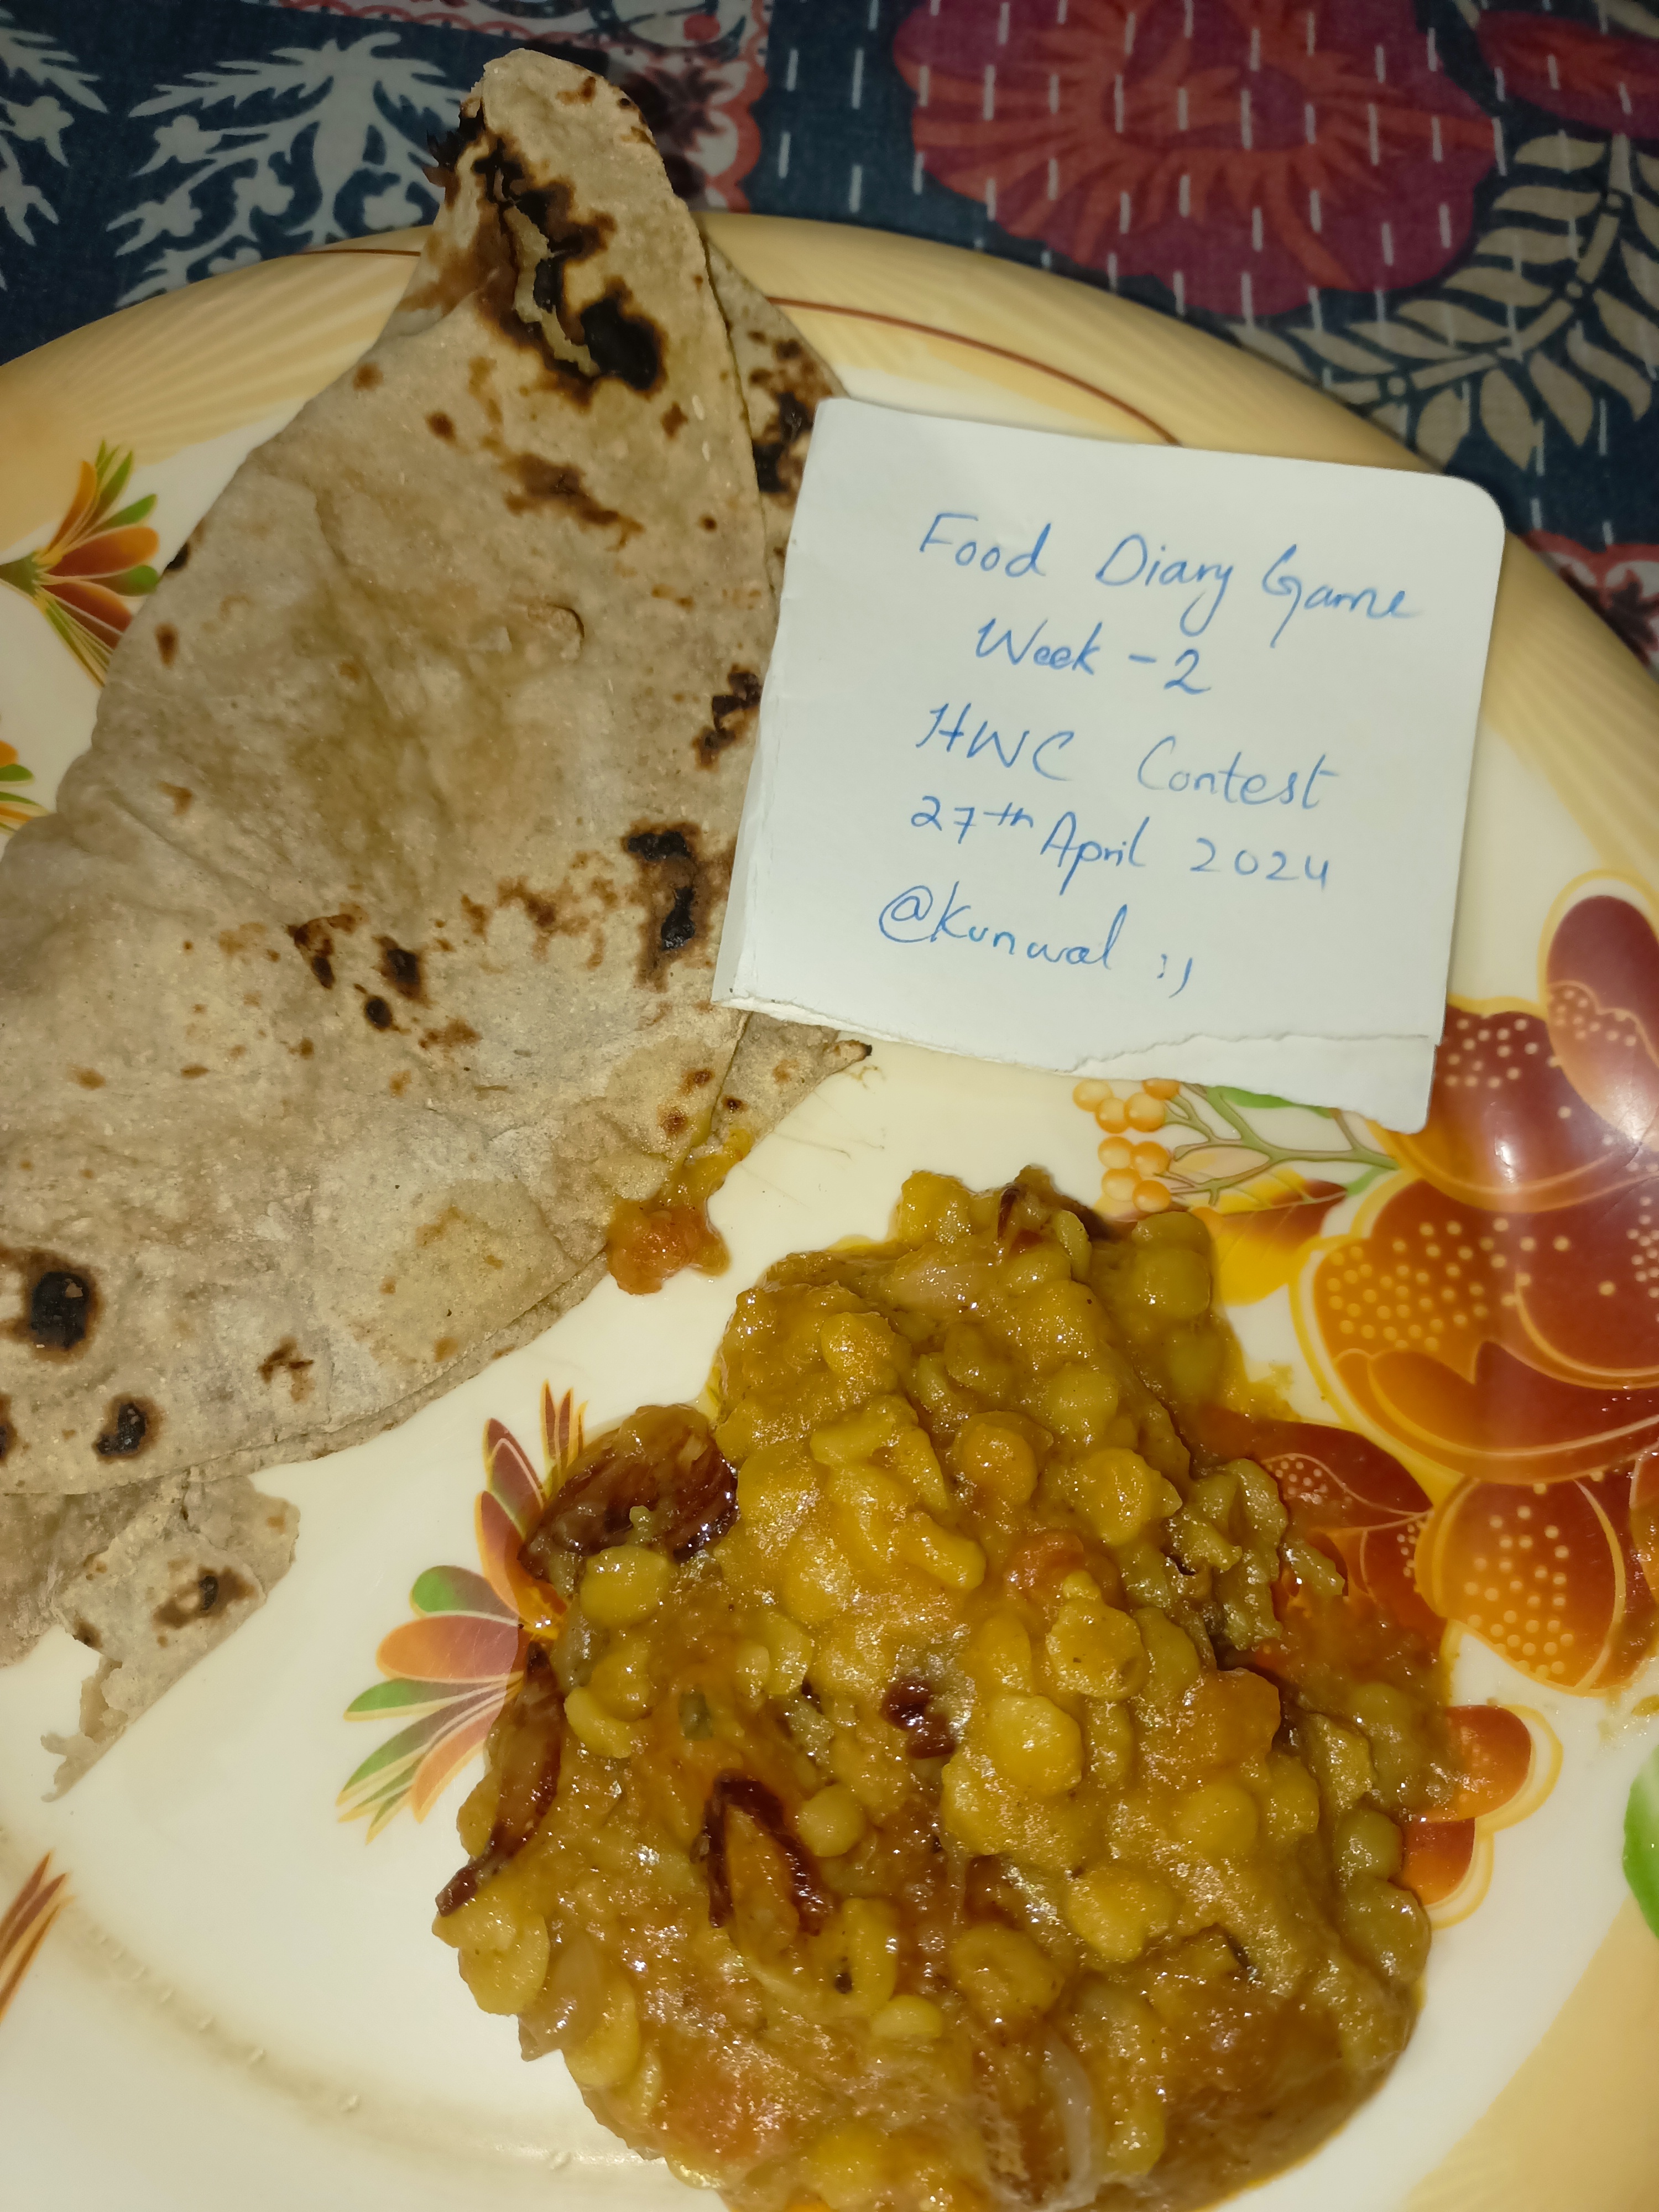 Food Diary Game
Week - 2
HWC Contest
27th April 2024
@Kunwal :)